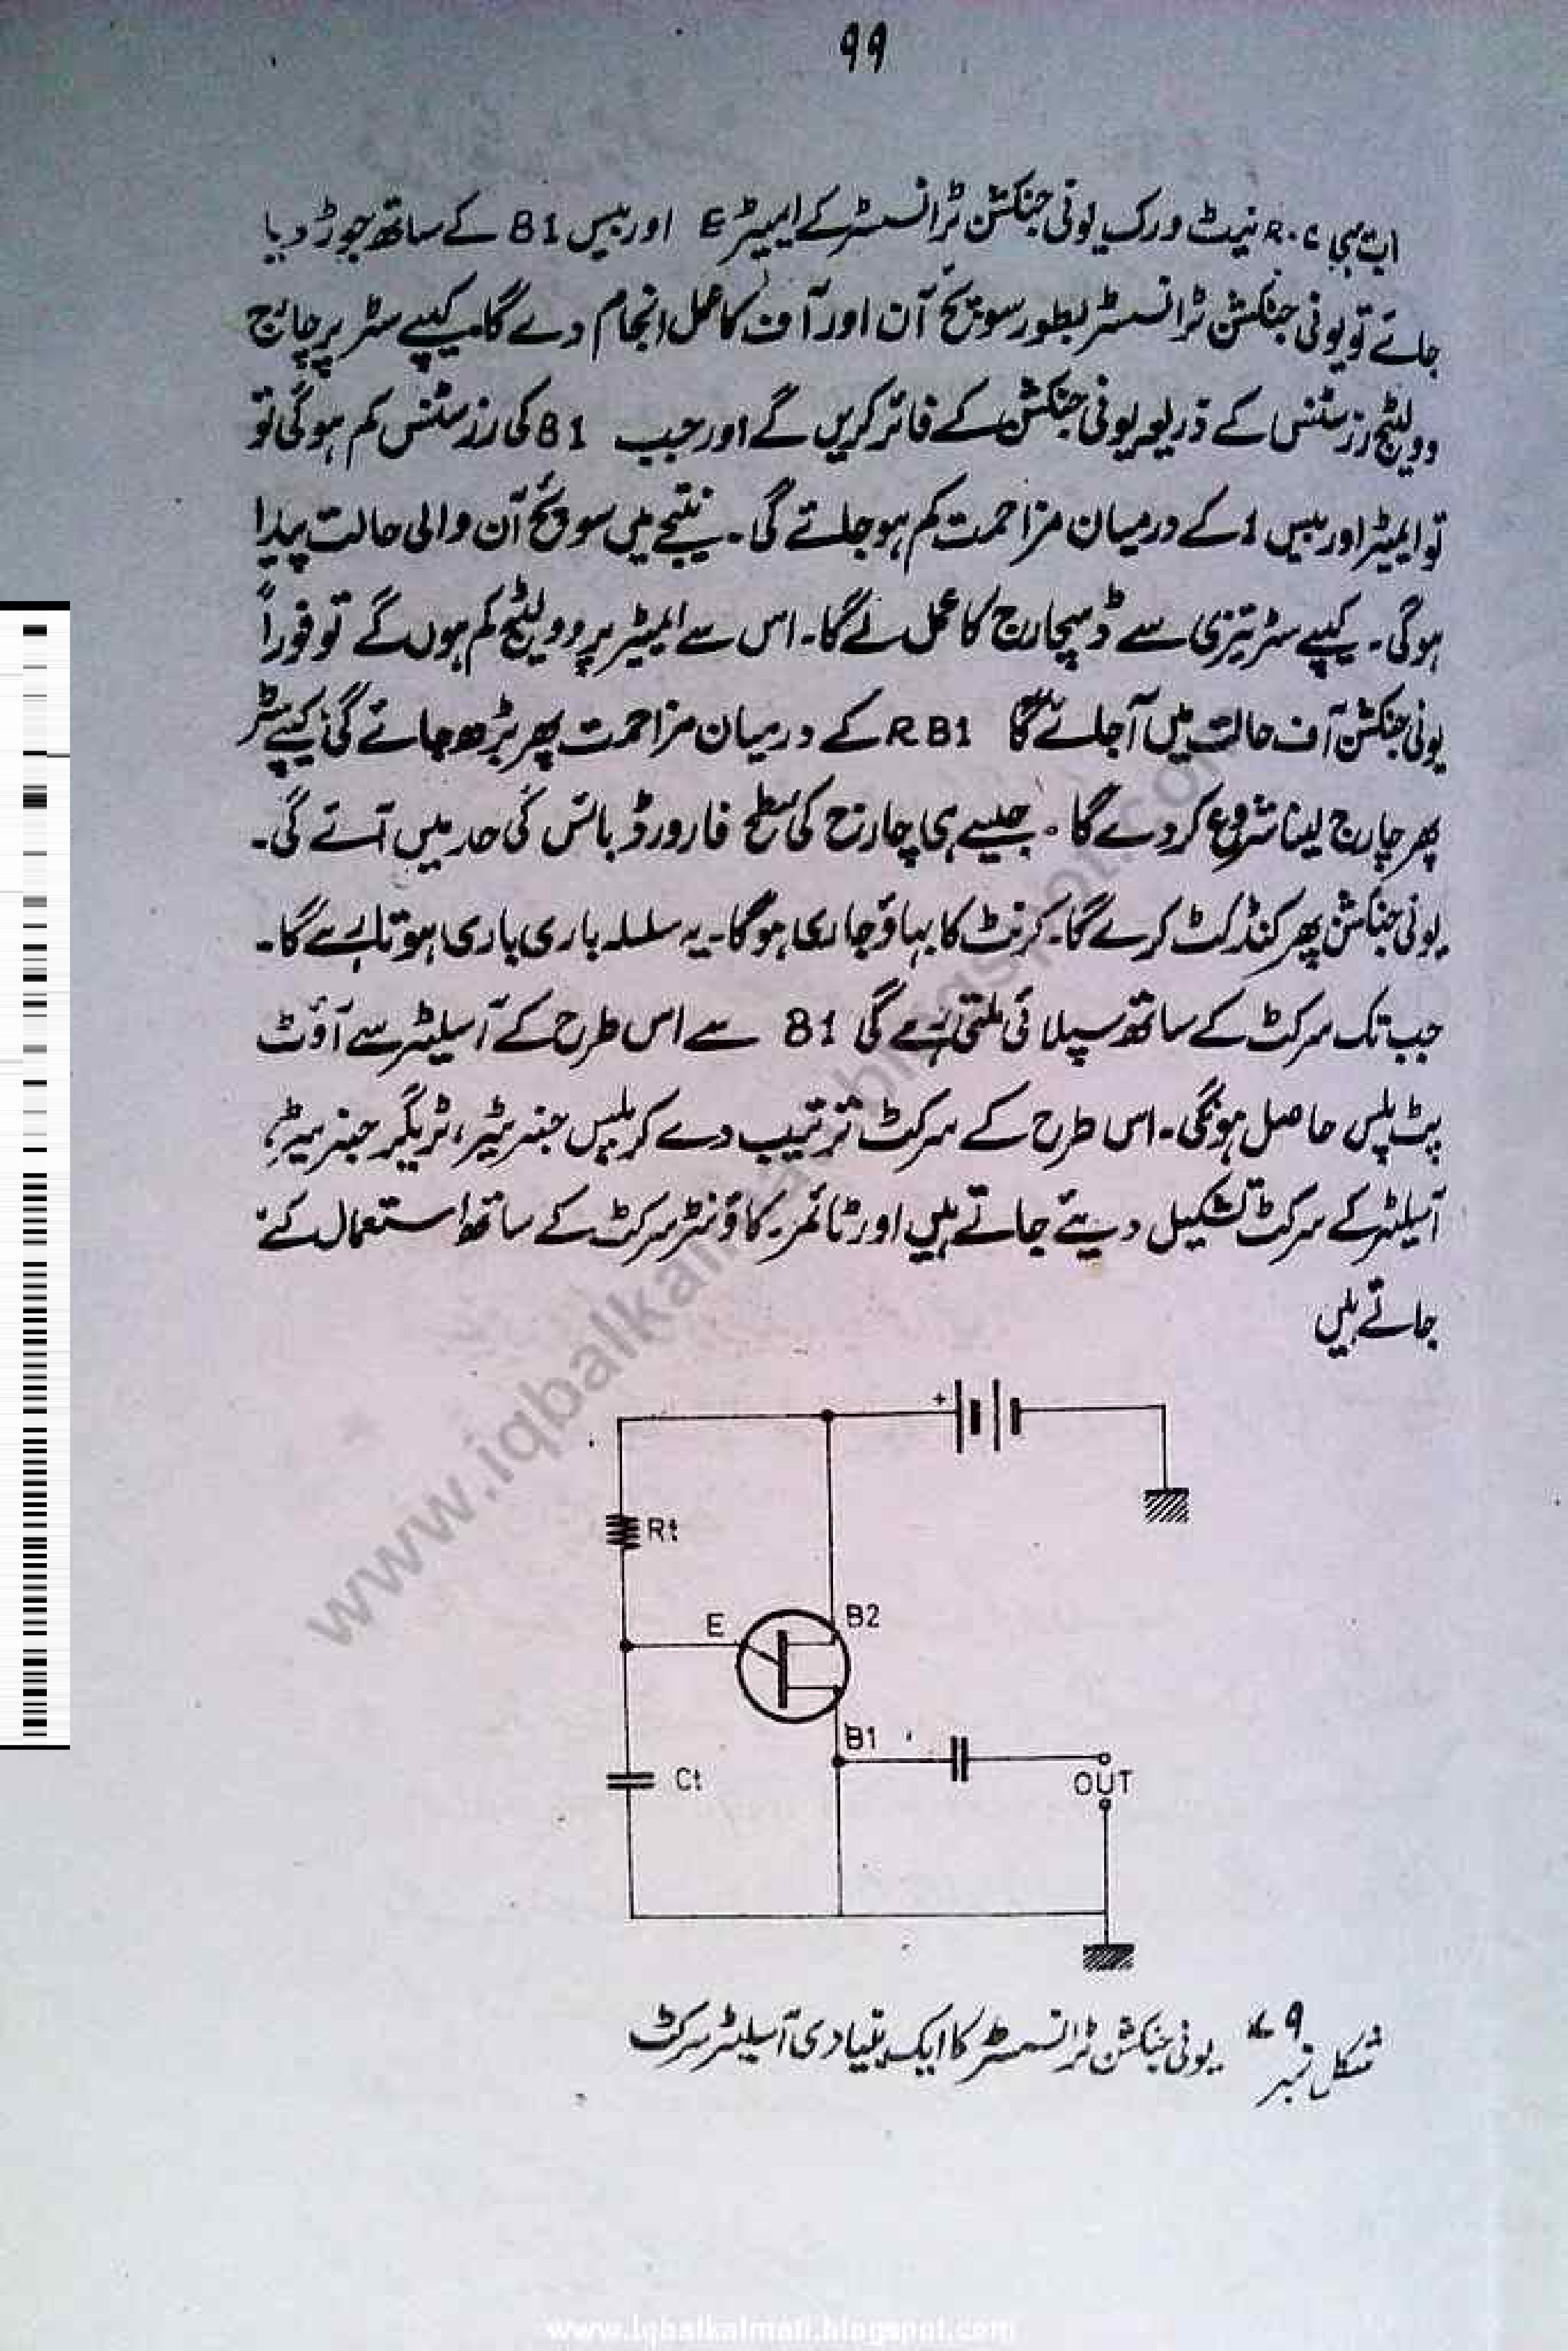 ۹۹
اب ہی R.C نیٹ ورک یونی جنکشن ٹرانسسٹر کے ایمیٹر E اور بیس B1 کے ساتھ جوڑ دیا
جائے تو یونی جنکشن ٹرانسسٹر بطور سویچ آن اور آف کا عمل انجام دے گا۔ کیپے سٹر پر چارج
وولٹیج رزسٹنس کے ذریعہ یونی جنکشن کے فائر کریں گے اور جب B1 کی رزسٹنس کم ہوگی تو
تو ایمیٹر اور بیس 1 کے درمیان مزاحمت کم ہو جائے گی۔ نتیجے میں سوئچ آن والی حالت پیدا
ہوگی۔ کیپے سٹر تیزی سے ڈسچارج کا عمل لے گا۔ اس سے ایمیٹر پر وولٹیج کم ہوں گے تو فوراً
یونی جنکشن آف حالت میں آجائے گا RB1 کے درمیان مزاحمت پھر بڑھ جائے گی، کیپے سٹر
پھر چارج لینا شروع کر دے گا۔ جیسے ہی چارج کی سطح فارورڈ بائس کی حد میں آئے گی۔
یونی جنکشن پھر کنڈکٹ کرے گا۔ کرنٹ کا بہاؤ جاری ہوگا۔ یہ سلسلہ باری باری ہوتا رہے گا۔
جب تک سرکٹ کے ساتھ سپلائی ملتی رہے گی B1 سے اس طرح کے آسیلیٹر سے آؤٹ
پٹ پلس حاصل ہونگی۔ اس طرح کے سرکٹ ترتیب دے کر پلس جنریٹر، ٹریگر جنریٹر،
آسیلیٹر کے سرکٹ تشکیل دیئے جاتے ہیں اور ٹائمر۔ کاؤنٹر سرکٹ کے ساتھ استعمال کئے
جاتے ہیں
+
Rt
E
B2
B1
Ct
OUT
شکل نمبر ۹۷ یونی جنکشن ٹرانسسٹر کا ایک بنیادی آسیلیٹر سرکٹ
www.iqbalkalmati.blogspot.com
www.iqbalkalmati.blogspot.com